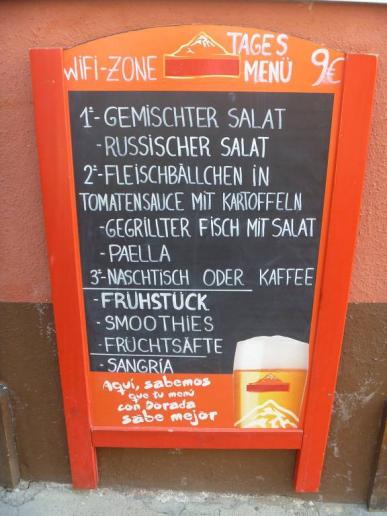 WiFi-ZONE
TAGES
MENÜ
9€
1º-GEMISCHTER SALAT
-RUSSISCHER SALAT
2º-FLEISCHBÄLLCHEN IN
TOMATENSAUCE MIT KARTOFFELN
-GEGRILLTER FISCH MIT SALAT
-PAELLA
3º-NASCHTISCH ODER KAFFEE
-FRÜHSTÜCK
-SMOOTHIES
-FRÜCHTSÄFTE
-SANGRÍA
Aquí, sabemos
que tu menú
con Dorada
sabe mejor